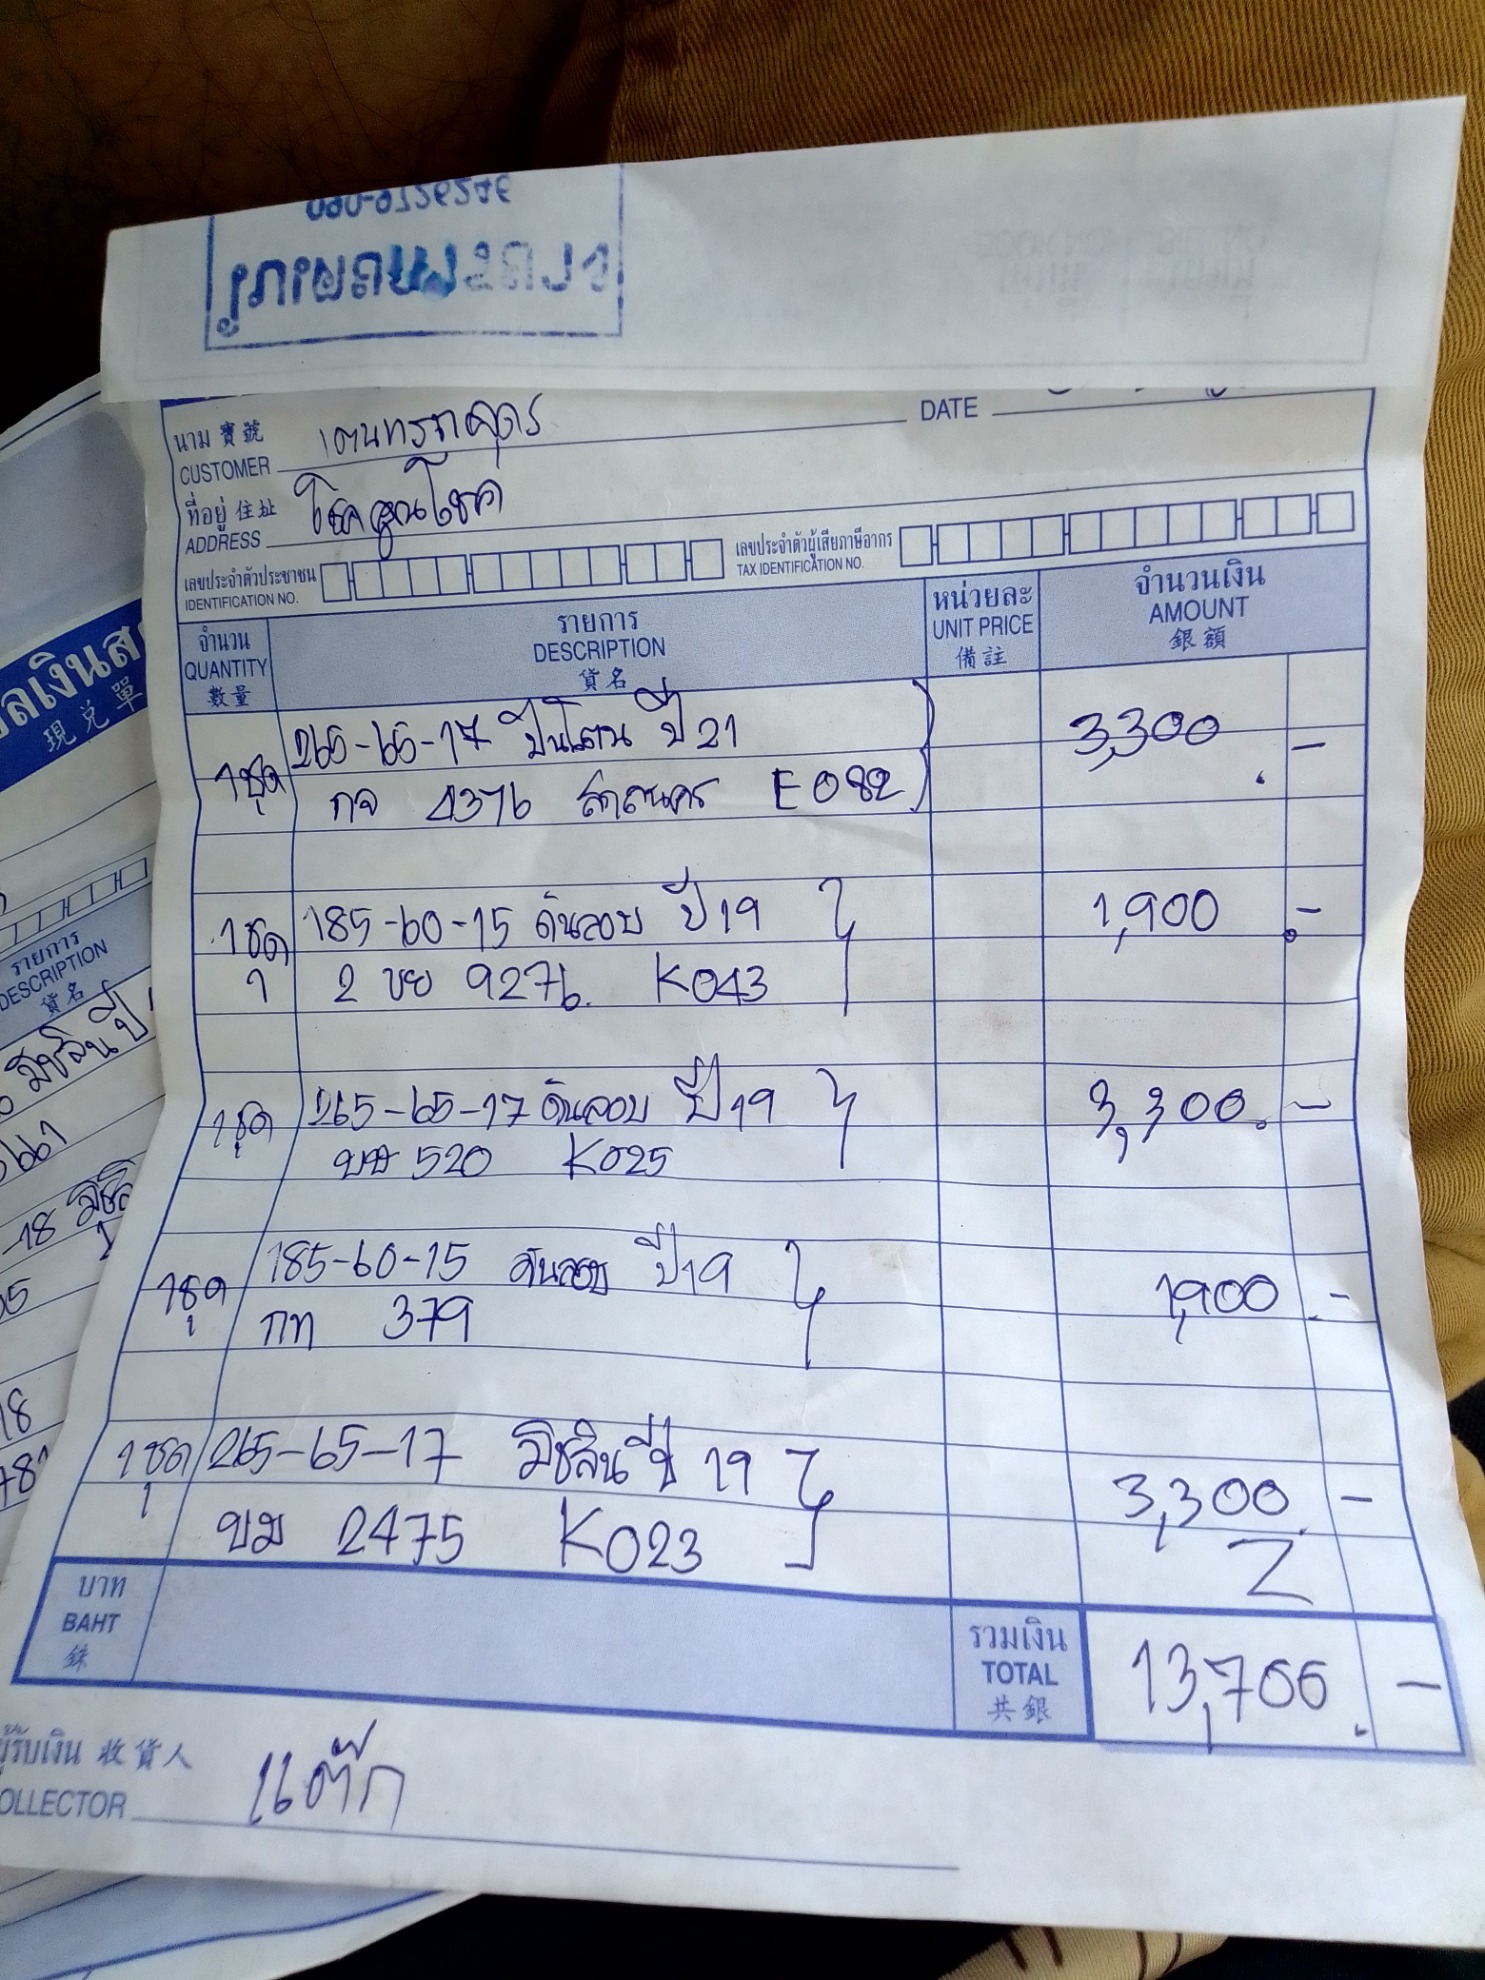 090-9726246
นาม 寶號
CUSTOMER
DATE
ที่อยู่ 住址 โชคคูณโชค
ADDRESS
เลขประจำตัวประชาชน
IDENTIFICATION NO.
เลขประจำตัวผู้เสียภาษีอากร
TAX IDENTIFICATION NO.
จำนวน
QUANTITY
數量
รายการ
DESCRIPTION
貨名
หน่วยละ
UNIT PRICE
備註
จำนวนเงิน
AMOUNT
銀額
1ชุด 265-65-17 ปี 21 3,300 -
กจ 4376 E082
1ชุด 185-60-15 ดันลอบ ปี 19 1,900 -
2 ขย 9276 K043
1ชุด 265-65-17 ดันลอบ ปี 19 3,300 -
520 K025
1ชุด 185-60-15 ดันลอบ ปี 19 1,900 -
กท 379
1ชุด 265-65-17 มิชลิน ปี 19 3,300 -
ขม 2475 K023
บาท
BAHT
銖
รวมเงิน
TOTAL
共銀
13,700 -
ผู้รับเงิน 收貨人
COLLECTOR แต๊ก
現兌單
รายการ
DESCRIPTION
貨名
มิชลิน ปี